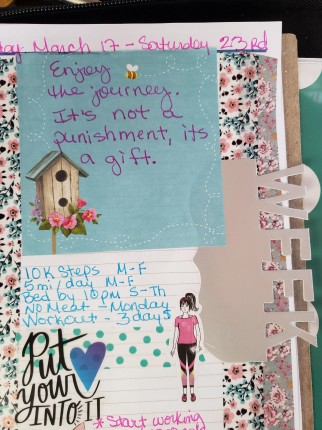 March 17 - Saturday 23rd
Enjoy
the journey.
It's not a
punishment, its
a gift.
WEEK
10K Steps M-F
5mi/day M-F
Bed by 10pm S-Th
No Meat - Monday
Workout - 3days
Put
your
INTO it
* Start working